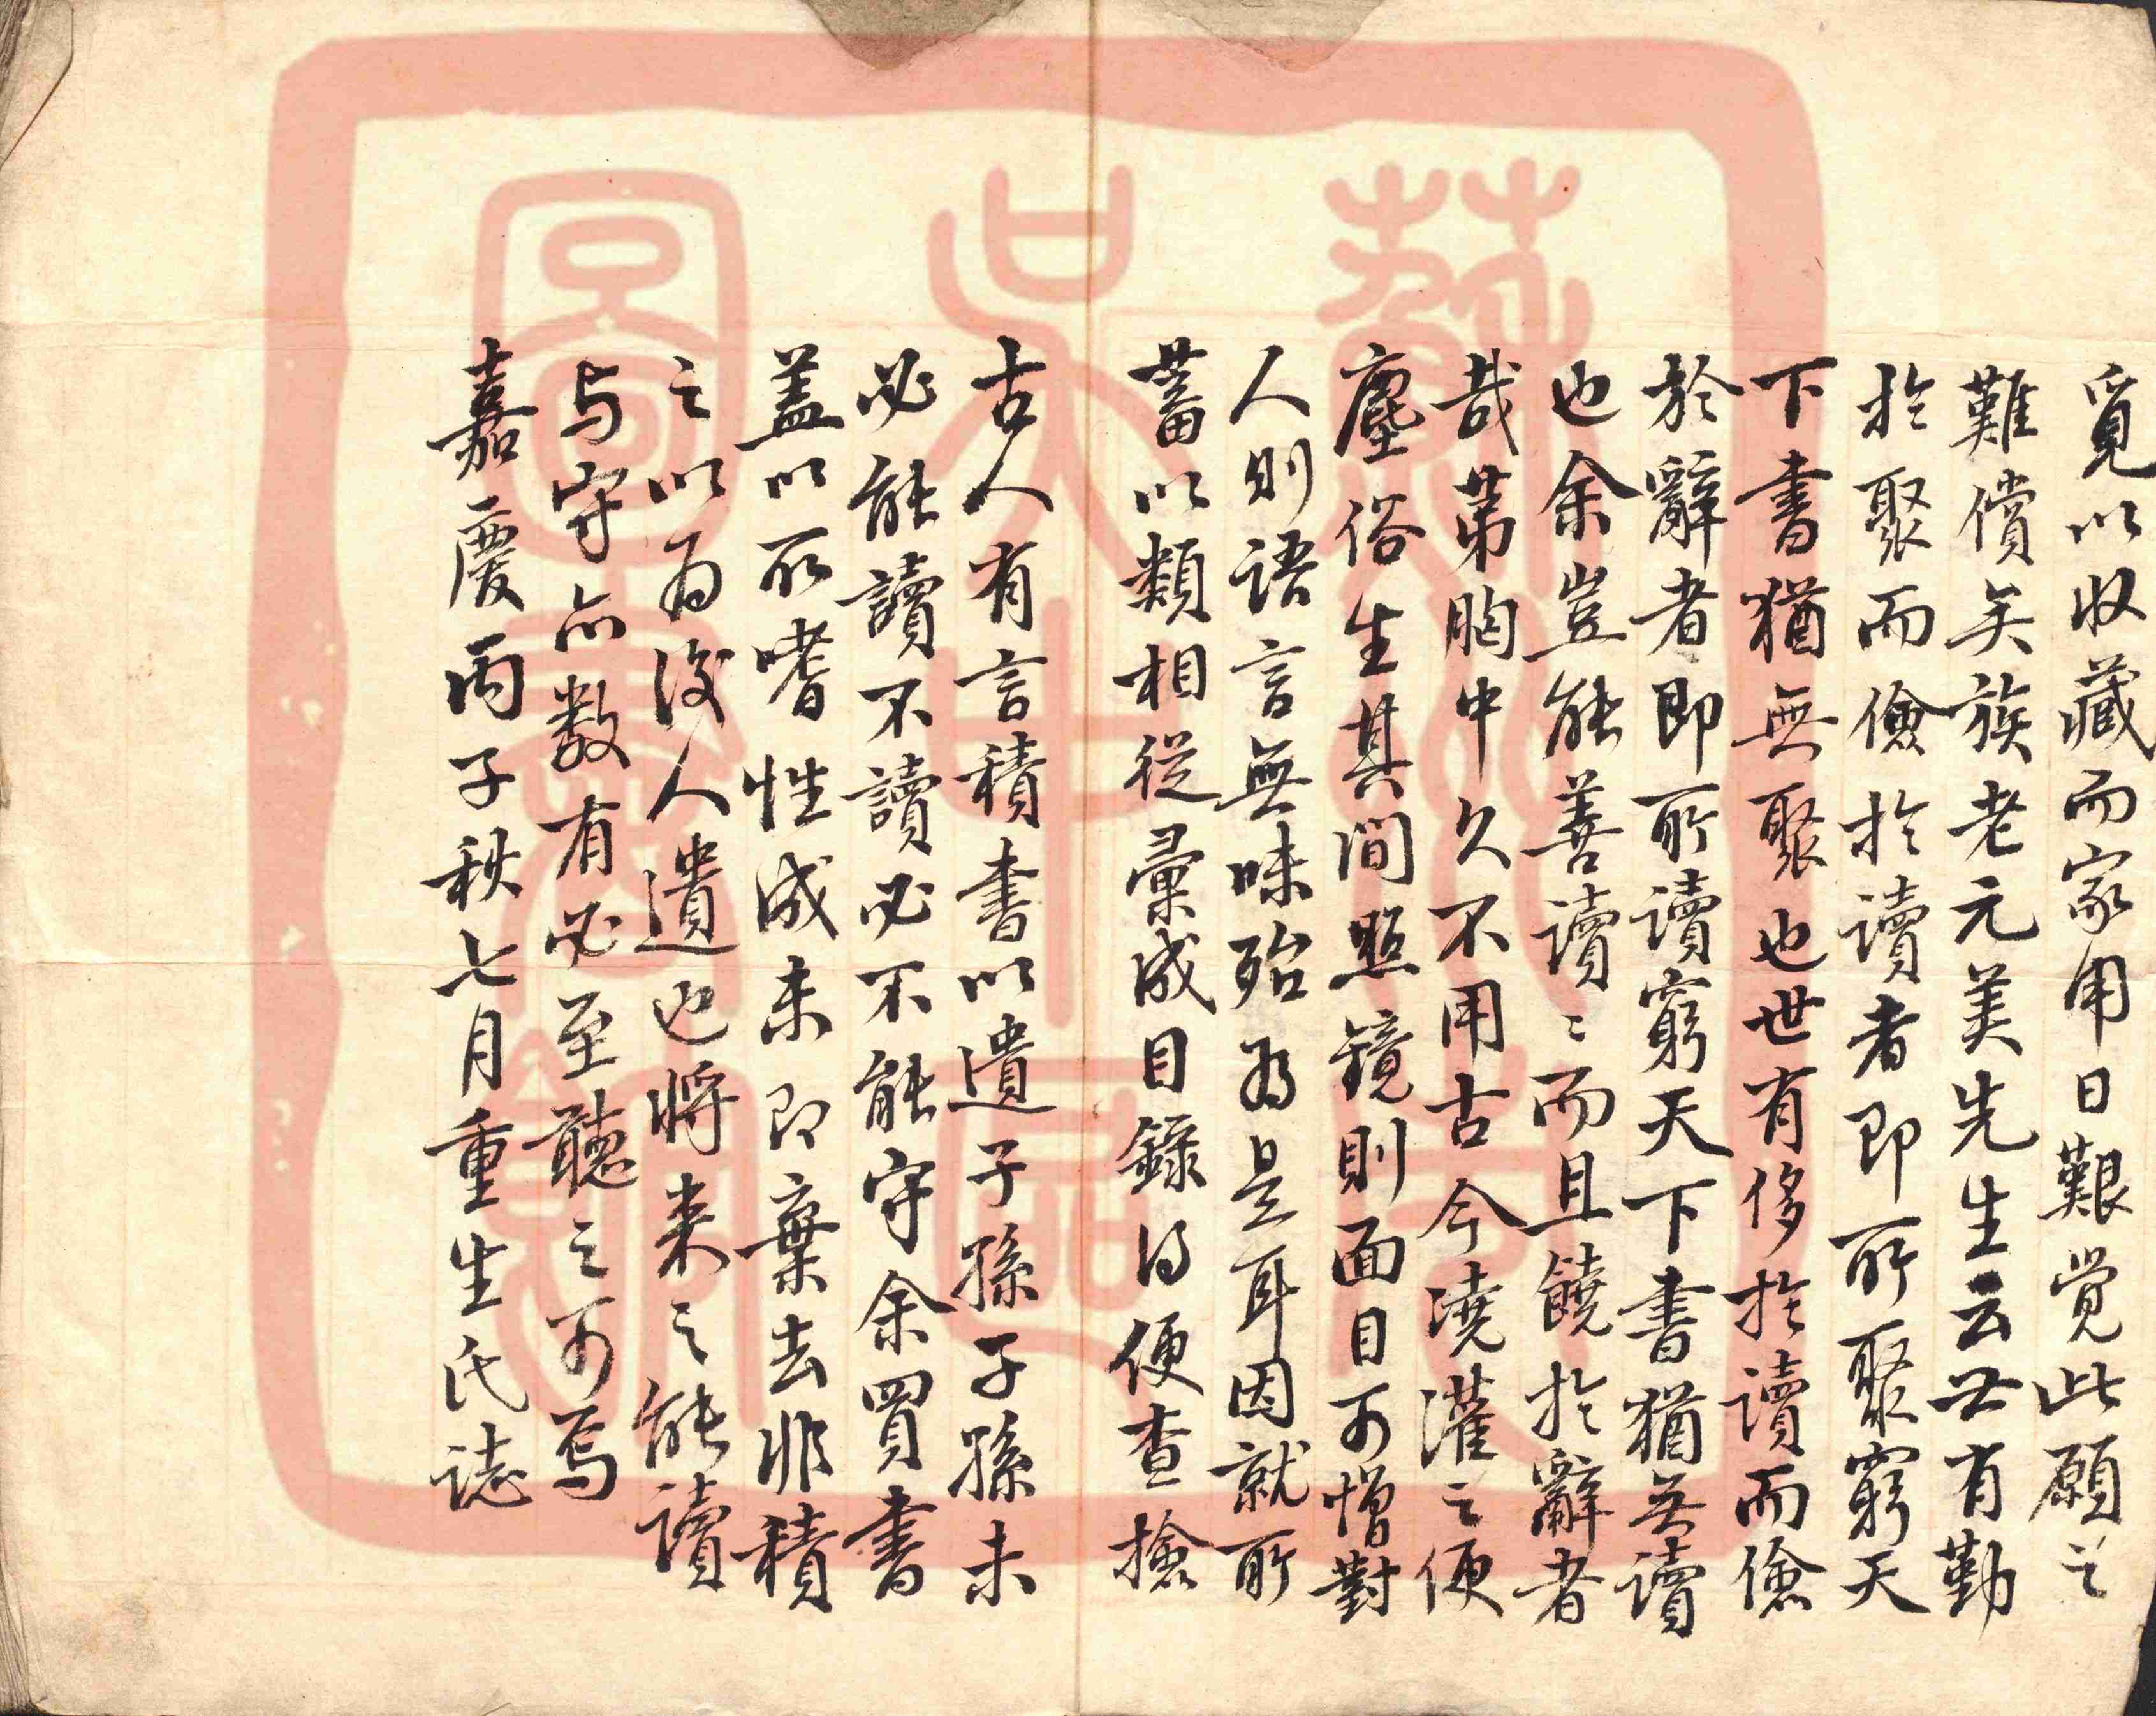 覓以收藏而家用日艱覚此願之
難償矣族老元美先生云世有勤
於聚而儉於讀者即所聚窮天
下書猶無聚也世有侈於讀而儉
於辭者即所讀窮天下書猶無讀
也余豈能善讀〻而且饒於辭者
哉苐胸中久不用古今澆灌之便
塵俗生其間照鏡則面目可憎對
人則語言無味殆為是耳因就所
蓄以類相從彙成目錄以便查撿
古人有言積書以遺子孫子孫未
必能讀不讀必不能守余買書
盖以所嗜性成未即棄去非積
之以為後人遺也將来之能讀
与守亦数有必至聽之可焉
嘉慶丙子秋七月重生氏誌